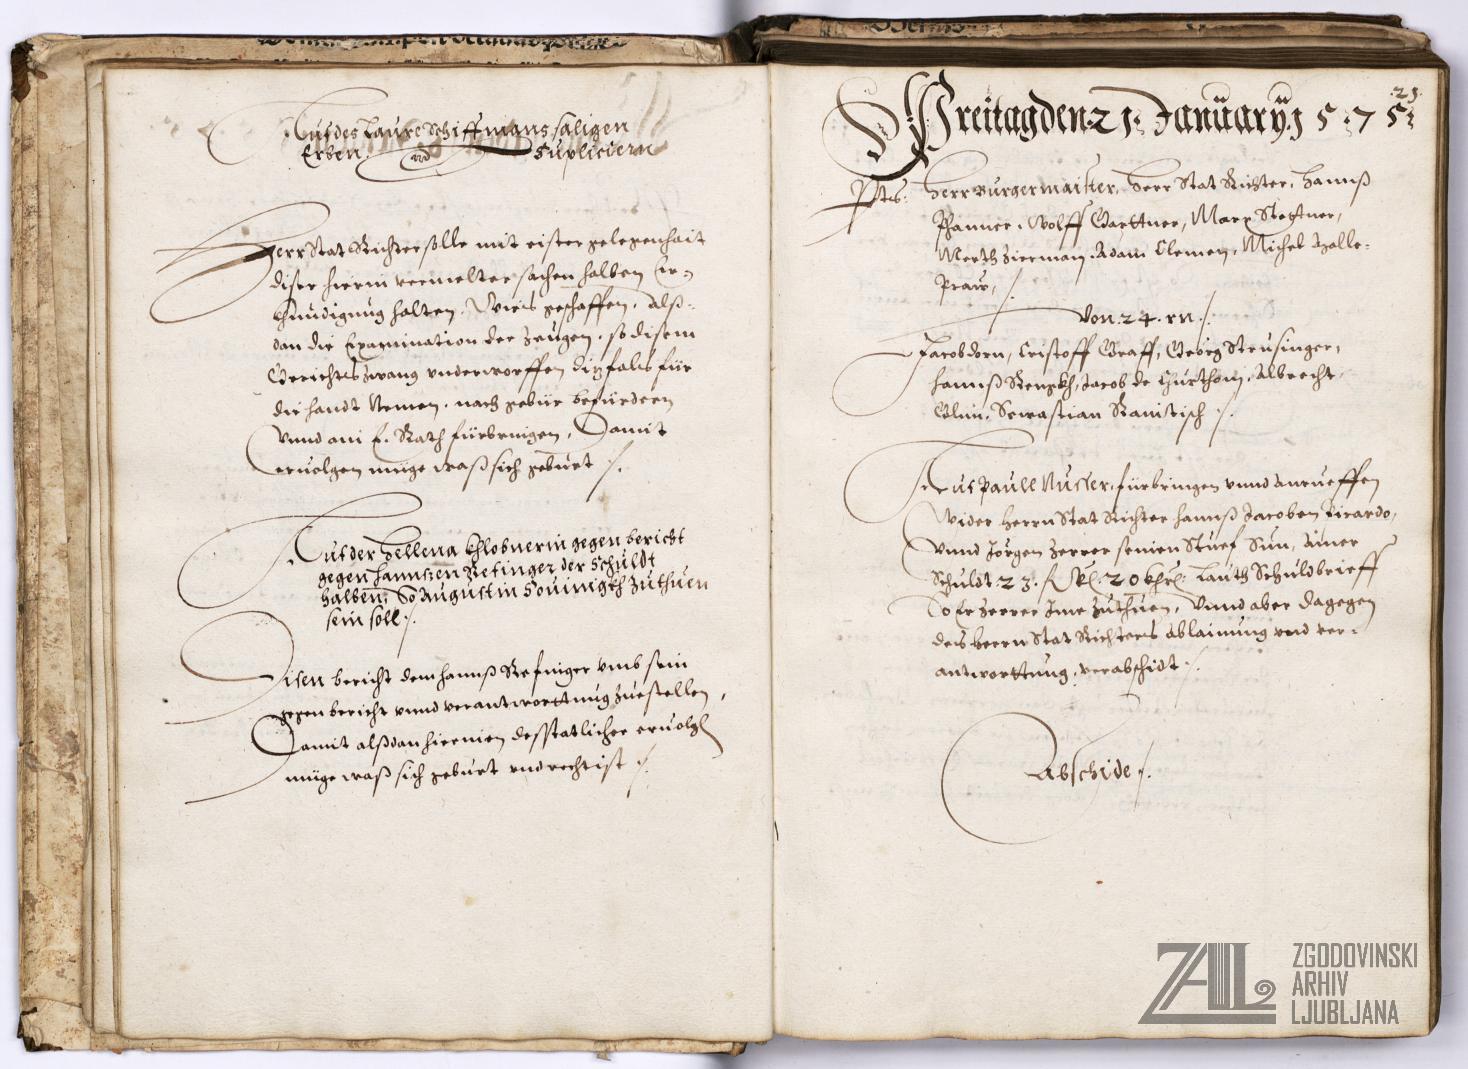 Auf des Laure Schiffmans saligen
Erben Supliciern
Herr Stat Richter solle mit eister gelegenhait
diser hierin vermelter sachen halben Er-
khundigung halten. Wiels geschaffen, alß-
dan die Examination der Zeugen, so disem
Gerichts zwang underworffen dißfals für
die handt Nemen, nach gebür befürdern
Unnd ani E. Rath fürbringen, Damit
ervolgen müge waß sich geburt
Auf der Hellena Khlobnerin gegen bericht
gegen hannsen Refinger der Schuldt
halben, So Augustin zuthuen
sein soll.
Disen bericht dem hannß Refinger umb sein
gegen bericht unnd verantworttung zuestellen,
Damit alßdan hierinen desstatlicher ervolgen
müge waß sich geburt und recht ist
21.
Freitag den 21 January 1575
Herr Burgermaister, Herr Stat Richter, Hannß
Phanner, Wolff Garttner, Marx Stettner,
Merth Zierman, Adam Clemen, Michel
Von 24. rn.
Jacob dorn, Cristoff Graff, Georg Streusinger,
hannß Renzkh, Jacob de Albrecht
Sewastian
Auf Paull fürbringen unnd Anrueffen
Wider Herrn Stat Richter Hannß Jacoben Ricardo,
Unnd Jörgen Zerrer seinen Stuef Sun, Ainer
Schuldt 23. 20 Lauth Schuldbrieff
So Er Zerrer Ime Zuthuen, Unnd aber dagegen
des Herrn Stat Richters ablainung und ver-
antworttung, verabschidt
Abschide
ZAL ZGODOVINSKI
ARHIV
LJUBLJANA